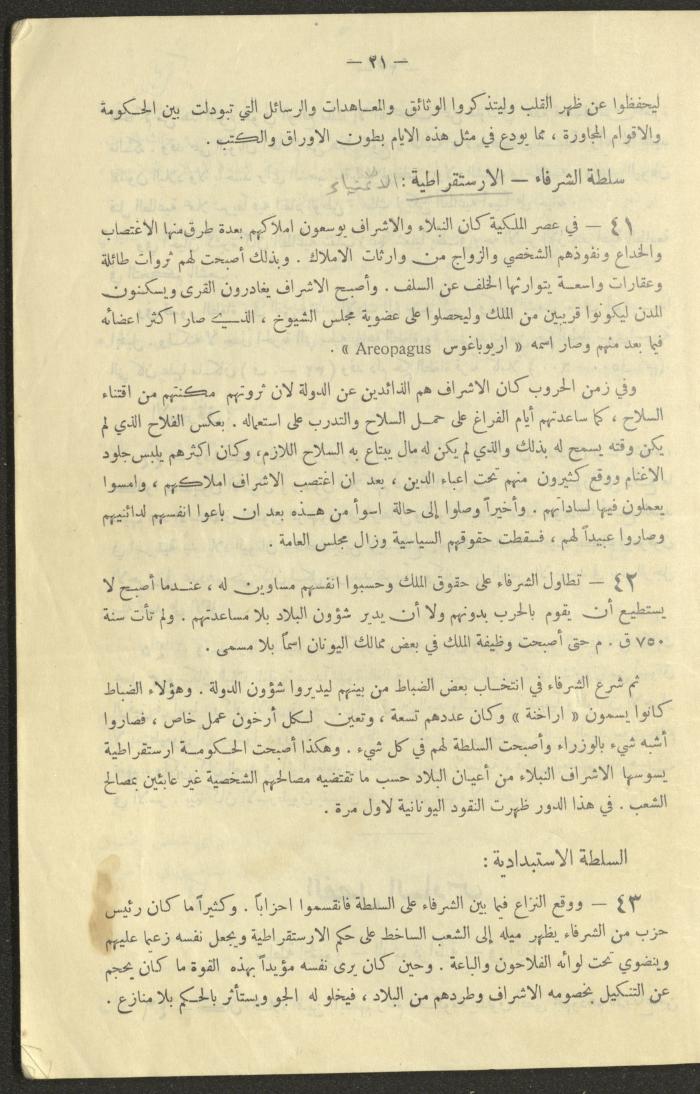 — ٢١ —
ليحفظوا عن ظهر القلب وليتذكروا الوثائق والمعاهدات والرسائل التي تبودلت بين الحكومة
والاقوام المجاورة ، مما يودع في مثل هذه الايام بطون الاوراق والكتب .
سلطة الشرفاء — الارستقراطية : الاغنياء
٤١ — في عصر الملكية كان النبلاء والاشراف يوسعون املاكهم بعدة طرق منها الاغتصاب
والخداع ونفوذهم الشخصي والزواج من وارثات الاملاك . وبذلك أصبحت لهم ثروات طائلة
وعقارات واسعة يتوارثها الخلف عن السلف . وأصبح الاشراف يغادرون القرى ويسكنون
المدن ليكونوا قريبين من الملك وليحصلوا على عضوية مجلس الشيوخ ، الذي صار اكثر اعضائه
فيما بعد منهم وصار اسمه « اريوباغوس Areopagus » .
وفي زمن الحروب كان الاشراف هم الذائدين عن الدولة لان ثروتهم مكنتهم من اقتناء
السلاح ، كما ساعدتهم أيام الفراغ على حمل السلاح والتدرب على استعماله . بعكس الفلاح الذي لم
يكن وقته يسمح له بذلك والذي لم يكن له مال يبتاع به السلاح اللازم، وكان اكثرهم يلبس جلود
الاغنام ووقع كثيرون منهم تحت اعباء الدين ، بعد ان اغتصب الاشراف املاكهم ، وامسوا
يعملون فيها لساداتهم . وأخيراً وصلوا إلى حالة اسوأ من هذه بعد ان باعوا انفسهم لدائنيهم
وصاروا عبيداً لهم ، فسقطت حقوقهم السياسية وزال مجلس العامة .
٤٢ — تطاول الشرفاء على حقوق الملك وحسبوا انفسهم مساوين له ، عندما أصبح لا
يستطيع أن يقوم بالحرب بدونهم ولا أن يدير شؤون البلاد بلا مساعدتهم . ولم تأت سنة
٧٥٠ ق . م حتى أصبحت وظيفة الملك في بعض ممالك اليونان اسماً بلا مسمى .
ثم شرع الشرفاء في انتخاب بعض الضباط من بينهم ليديروا شؤون الدولة . وهؤلاء الضباط
كانوا يسمون « اراخنة » وكان عددهم تسعة ، وتعين لكل أرخون عمل خاص ، فصاروا
أشبه شيء بالوزراء وأصبحت السلطة لهم في كل شيء . وهكذا أصبحت الحكومة ارستقراطية
يسوسها الاشراف النبلاء من أعيان البلاد حسب ما تقتضيه مصالحهم الشخصية غير عابئين بمصالح
الشعب . في هذا الدور ظهرت النقود اليونانية لاول مرة .
السلطة الاستبدادية :
٤٣ — ووقع النزاع فيما بين الشرفاء على السلطة فانقسموا احزاباً . وكثيراً ما كان رئيس
حزب من الشرفاء يظهر ميله إلى الشعب الساخط على حكم الارستقراطية ويجعل نفسه زعيما عليهم
وينضوي تحت لوائه الفلاحون والباعة . وحين كان يرى نفسه مؤيداً بهذه القوة ما كان يحجم
عن التنكيل بخصومه الاشراف وطردهم من البلاد ، فيخلو له الجو ويستأثر بالحكم بلا منازع .